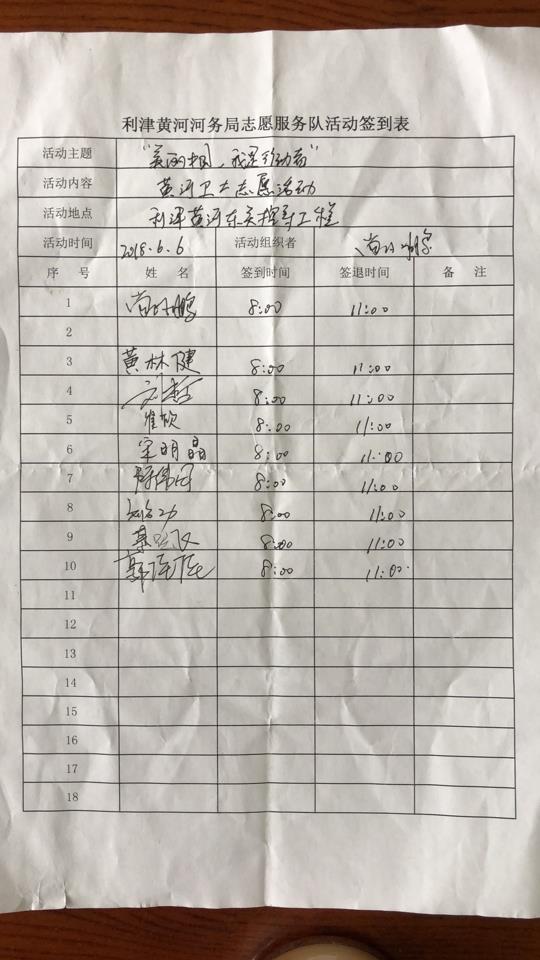 利津黄河河务局志愿服务队活动签到表
活动主题 "美丽中国,我是行动者"
活动内容 黄河卫士志愿活动
活动地点 利津黄河东关控导工程
活动时间 2018.6.6 活动组织者
序 号 姓 名 签到时间 签退时间 备 注
1 8:00 11:00
2
3 黄林健 8:00 11:00
4 8:00 11:00
5 崔欣 8:00 11:00
6 宋明晶 8:00 11:00
7 8:00 11:00
8 8:00 11:00
9 8:00 11:00
10 8:00 11:00
11
12
13
14
15
16
17
18